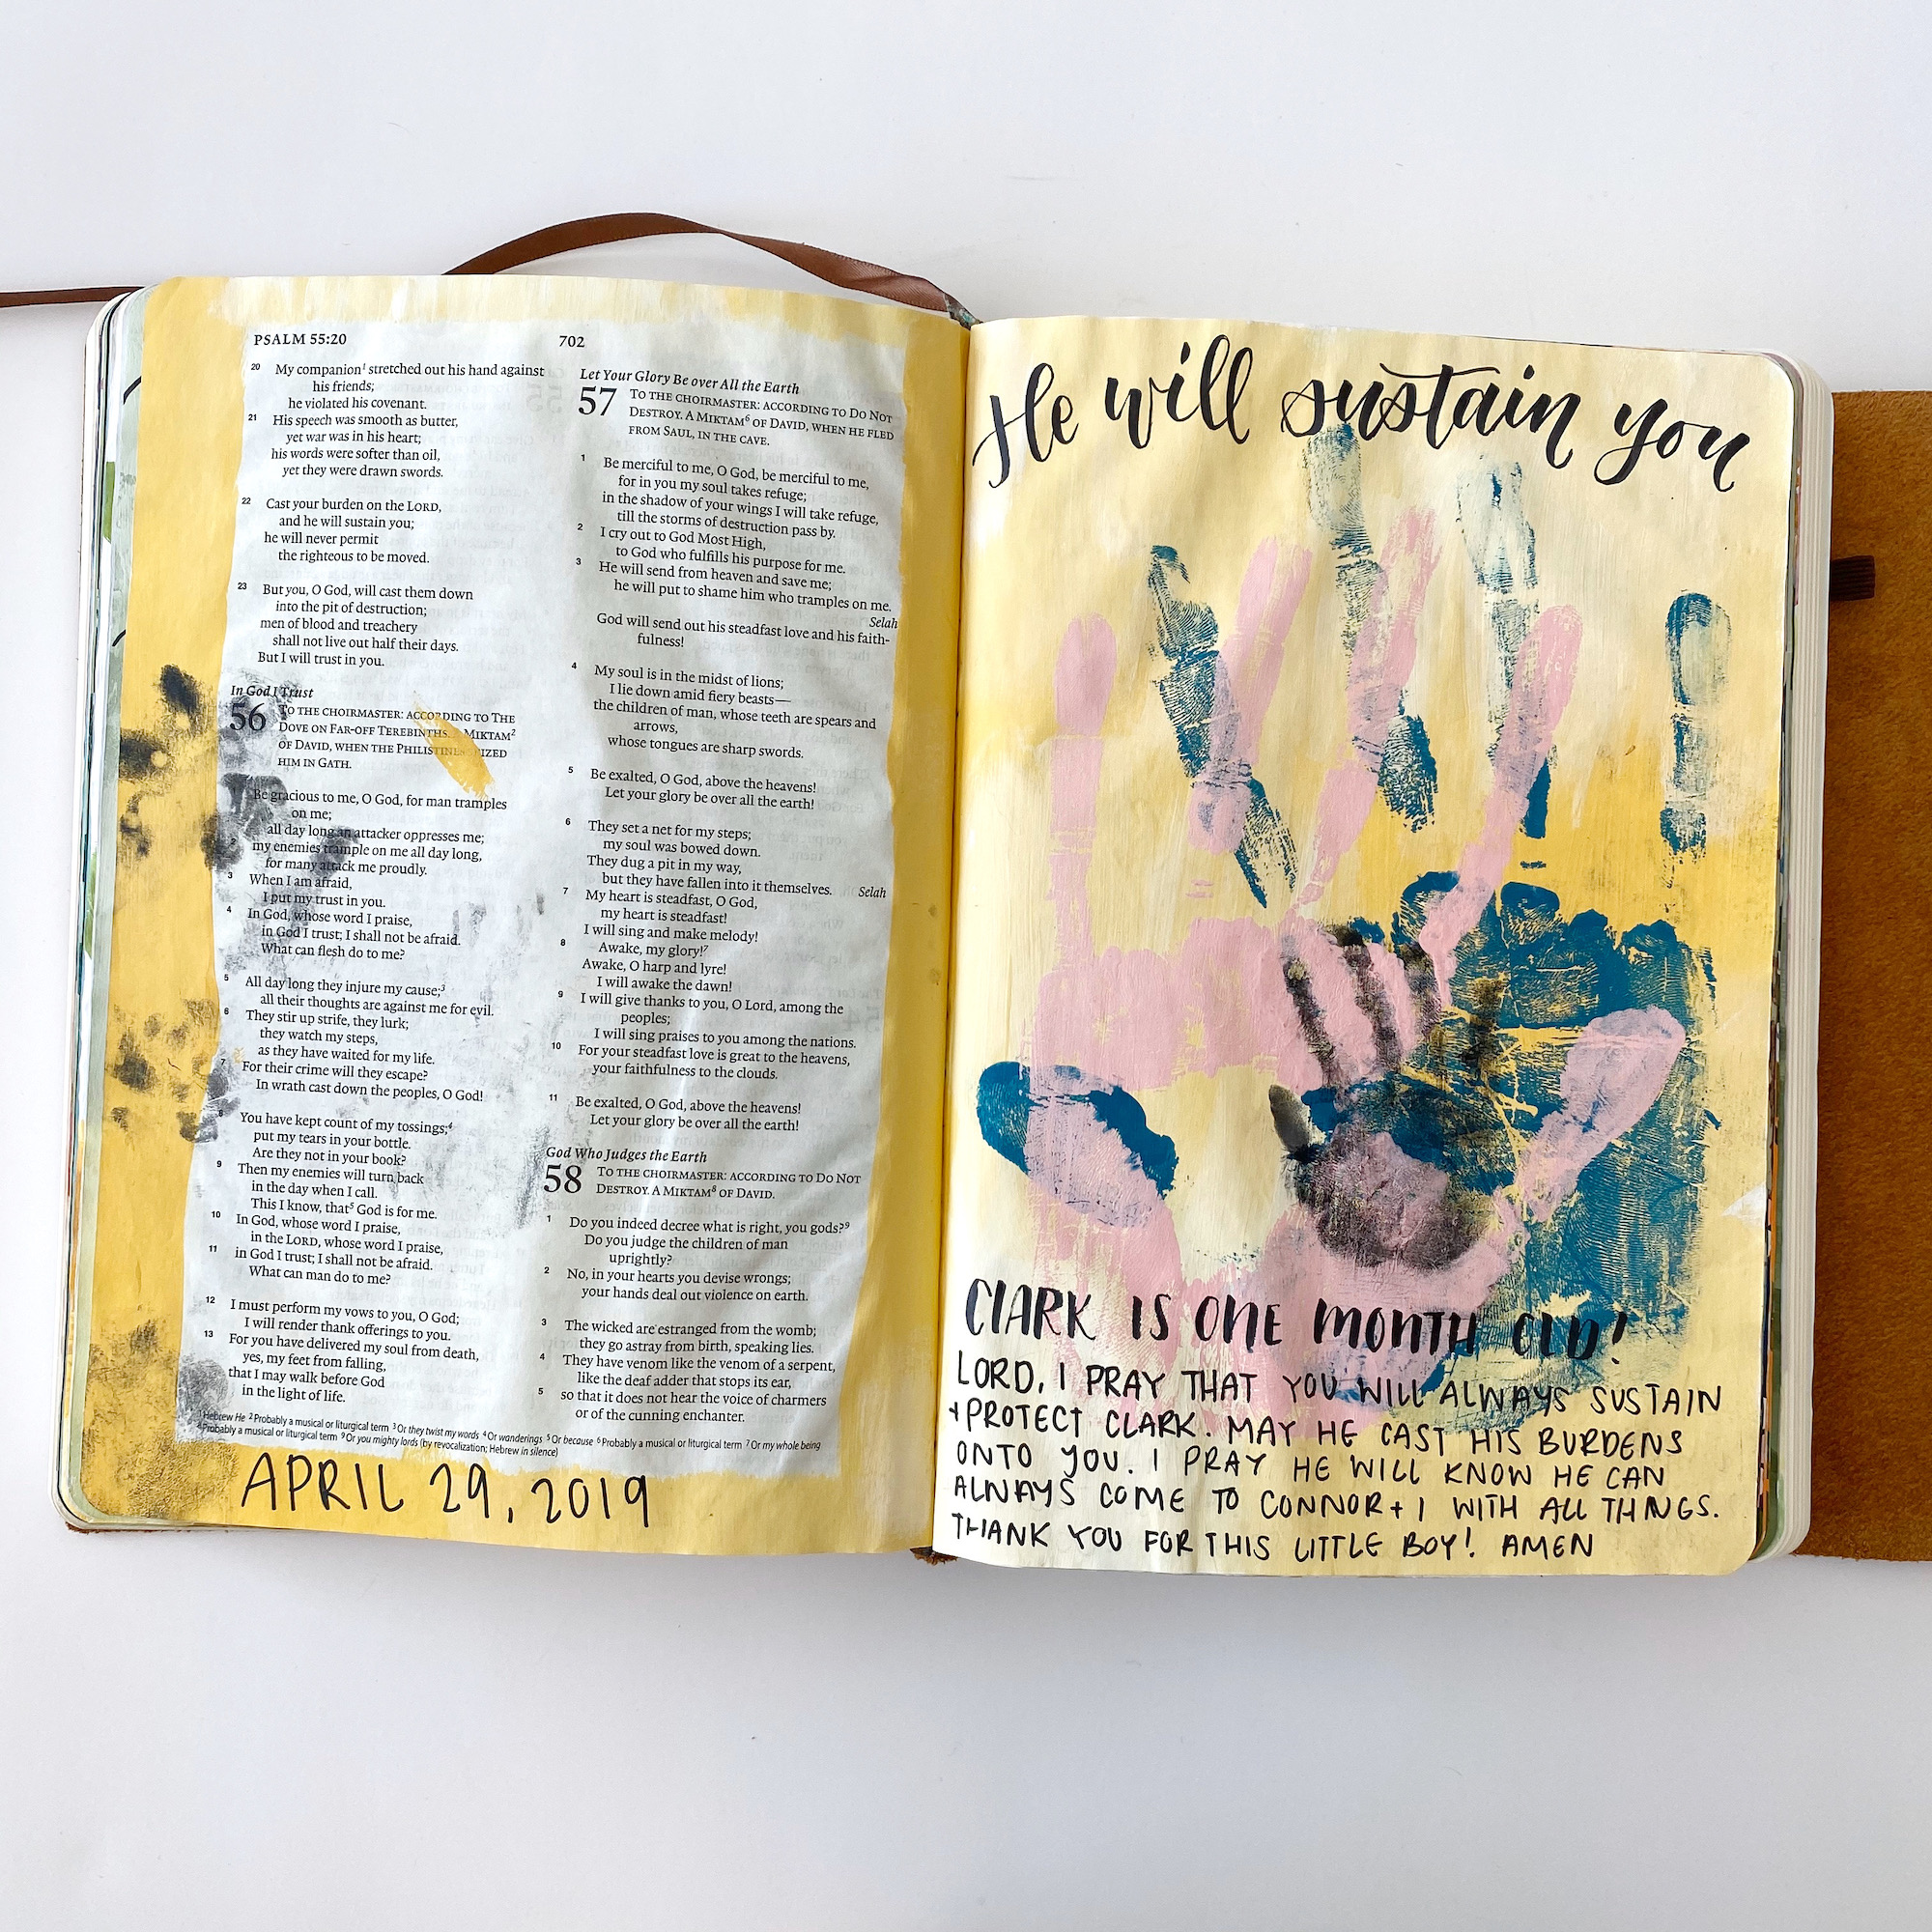 PSALM 55:20
702
20 My companion¹ stretched out his hand against
his friends;
he violated his covenant.
21 His speech was smooth as butter,
yet war was in his heart;
his words were softer than oil,
yet they were drawn swords.
22 Cast your burden on the LORD,
and he will sustain you;
he will never permit
the righteous to be moved.
23 But you, O God, will cast them down
into the pit of destruction;
men of blood and treachery
shall not live out half their days.
But I will trust in you.
In God I Trust
56 TO THE CHOIRMASTER: ACCORDING TO THE
DOVE ON FAR-OFF TEREBINTHS. MIKTAM²
OF DAVID, WHEN THE PHILISTINES SEIZED
HIM IN GATH.
Be gracious to me, O God, for man tramples
on me;
all day long an attacker oppresses me;
2 my enemies trample on me all day long,
for many attack me proudly.
3 When I am afraid,
I put my trust in you.
4 In God, whose word I praise,
in God I trust; I shall not be afraid.
What can flesh do to me?
5 All day long they injure my cause;³
all their thoughts are against me for evil.
6 They stir up strife, they lurk;
they watch my steps,
as they have waited for my life.
7 For their crime will they escape?
In wrath cast down the peoples, O God!
8 You have kept count of my tossings;⁴
put my tears in your bottle.
Are they not in your book?
9 Then my enemies will turn back
in the day when I call.
This I know, that⁵ God is for me.
10 In God, whose word I praise,
in the LORD, whose word I praise,
11 in God I trust; I shall not be afraid.
What can man do to me?
12 I must perform my vows to you, O God;
I will render thank offerings to you.
13 For you have delivered my soul from death,
yes, my feet from falling,
that I may walk before God
in the light of life.
Let Your Glory Be over All the Earth
57 TO THE CHOIRMASTER: ACCORDING TO DO NOT
DESTROY. A MIKTAM⁶ OF DAVID, WHEN HE FLED
FROM SAUL, IN THE CAVE.
1 Be merciful to me, O God, be merciful to me,
for in you my soul takes refuge;
in the shadow of your wings I will take refuge,
till the storms of destruction pass by.
2 I cry out to God Most High,
to God who fulfills his purpose for me.
3 He will send from heaven and save me;
he will put to shame him who tramples on me.
Selah
God will send out his steadfast love and his faith-
fulness!
4 My soul is in the midst of lions;
I lie down amid fiery beasts—
the children of man, whose teeth are spears and
arrows,
whose tongues are sharp swords.
5 Be exalted, O God, above the heavens!
Let your glory be over all the earth!
6 They set a net for my steps;
my soul was bowed down.
They dug a pit in my way,
but they have fallen into it themselves. Selah
7 My heart is steadfast, O God,
my heart is steadfast!
I will sing and make melody!
8 Awake, my glory!⁷
Awake, O harp and lyre!
I will awake the dawn!
9 I will give thanks to you, O Lord, among the
peoples;
I will sing praises to you among the nations.
10 For your steadfast love is great to the heavens,
your faithfulness to the clouds.
11 Be exalted, O God, above the heavens!
Let your glory be over all the earth!
God Who Judges the Earth
58 TO THE CHOIRMASTER: ACCORDING TO DO NOT
DESTROY. A MIKTAM⁸ OF DAVID.
1 Do you indeed decree what is right, you gods?⁹
Do you judge the children of man
uprightly?
2 No, in your hearts you devise wrongs;
your hands deal out violence on earth.
3 The wicked are estranged from the womb;
they go astray from birth, speaking lies.
4 They have venom like the venom of a serpent,
like the deaf adder that stops its ear,
5 so that it does not hear the voice of charmers
or of the cunning enchanter.
¹ Hebrew He ² Probably a musical or liturgical term ³ Or they twist my words ⁴ Or wanderings ⁵ Or because ⁶ Probably a musical or liturgical term ⁷ Or my whole being
⁸ Probably a musical or liturgical term ⁹ Or you mighty lords (by revocalization; Hebrew in silence)
APRIL 29, 2019
He will sustain you
CLARK IS ONE MONTH OLD!
LORD, I PRAY THAT YOU WILL ALWAYS SUSTAIN
+ PROTECT CLARK. MAY HE CAST HIS BURDENS
ONTO YOU. I PRAY HE WILL KNOW HE CAN
ALWAYS COME TO CONNOR + I WITH ALL THINGS.
THANK YOU FOR THIS LITTLE BOY! AMEN